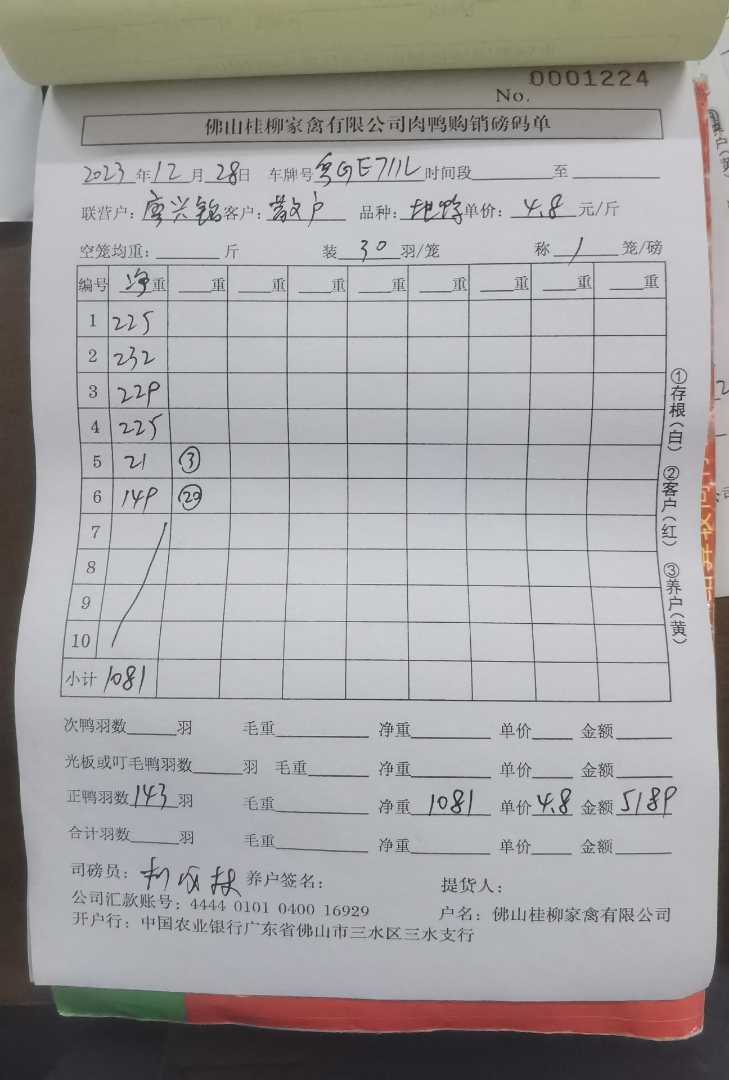 No. 0001224
佛山桂柳家禽有限公司肉鸭购销磅码单
2023年12月28日 车牌号粤GE711L时间段______至______
联营户:唐兴铭客户:散户 品种: 单价:4.8元/斤
空笼均重:______斤 装30羽/笼 称1笼/磅
编号 净重 ___重 ___重 ___重 ___重 ___重 ___重 ___重 ___重
1 225
2 232
3 229
4 225
5 21 ③
6 149 ⑳
7
8
9
10
小计 1081
次鸭羽数______羽 毛重______ 净重______ 单价____ 金额____
光板或叮毛鸭羽数______羽 毛重______ 净重______ 单价____ 金额____
正鸭羽数143羽 毛重______ 净重1081 单价4.8 金额5189
合计羽数______羽 毛重______ 净重______ 单价____ 金额____
司磅员: 养户签名: 提货人:
公司汇款账号:4444 0101 0400 16929 户名:佛山桂柳家禽有限公司
开户行:中国农业银行广东省佛山市三水区三水支行
①存根(白) ②客户(红) ③养户(黄)